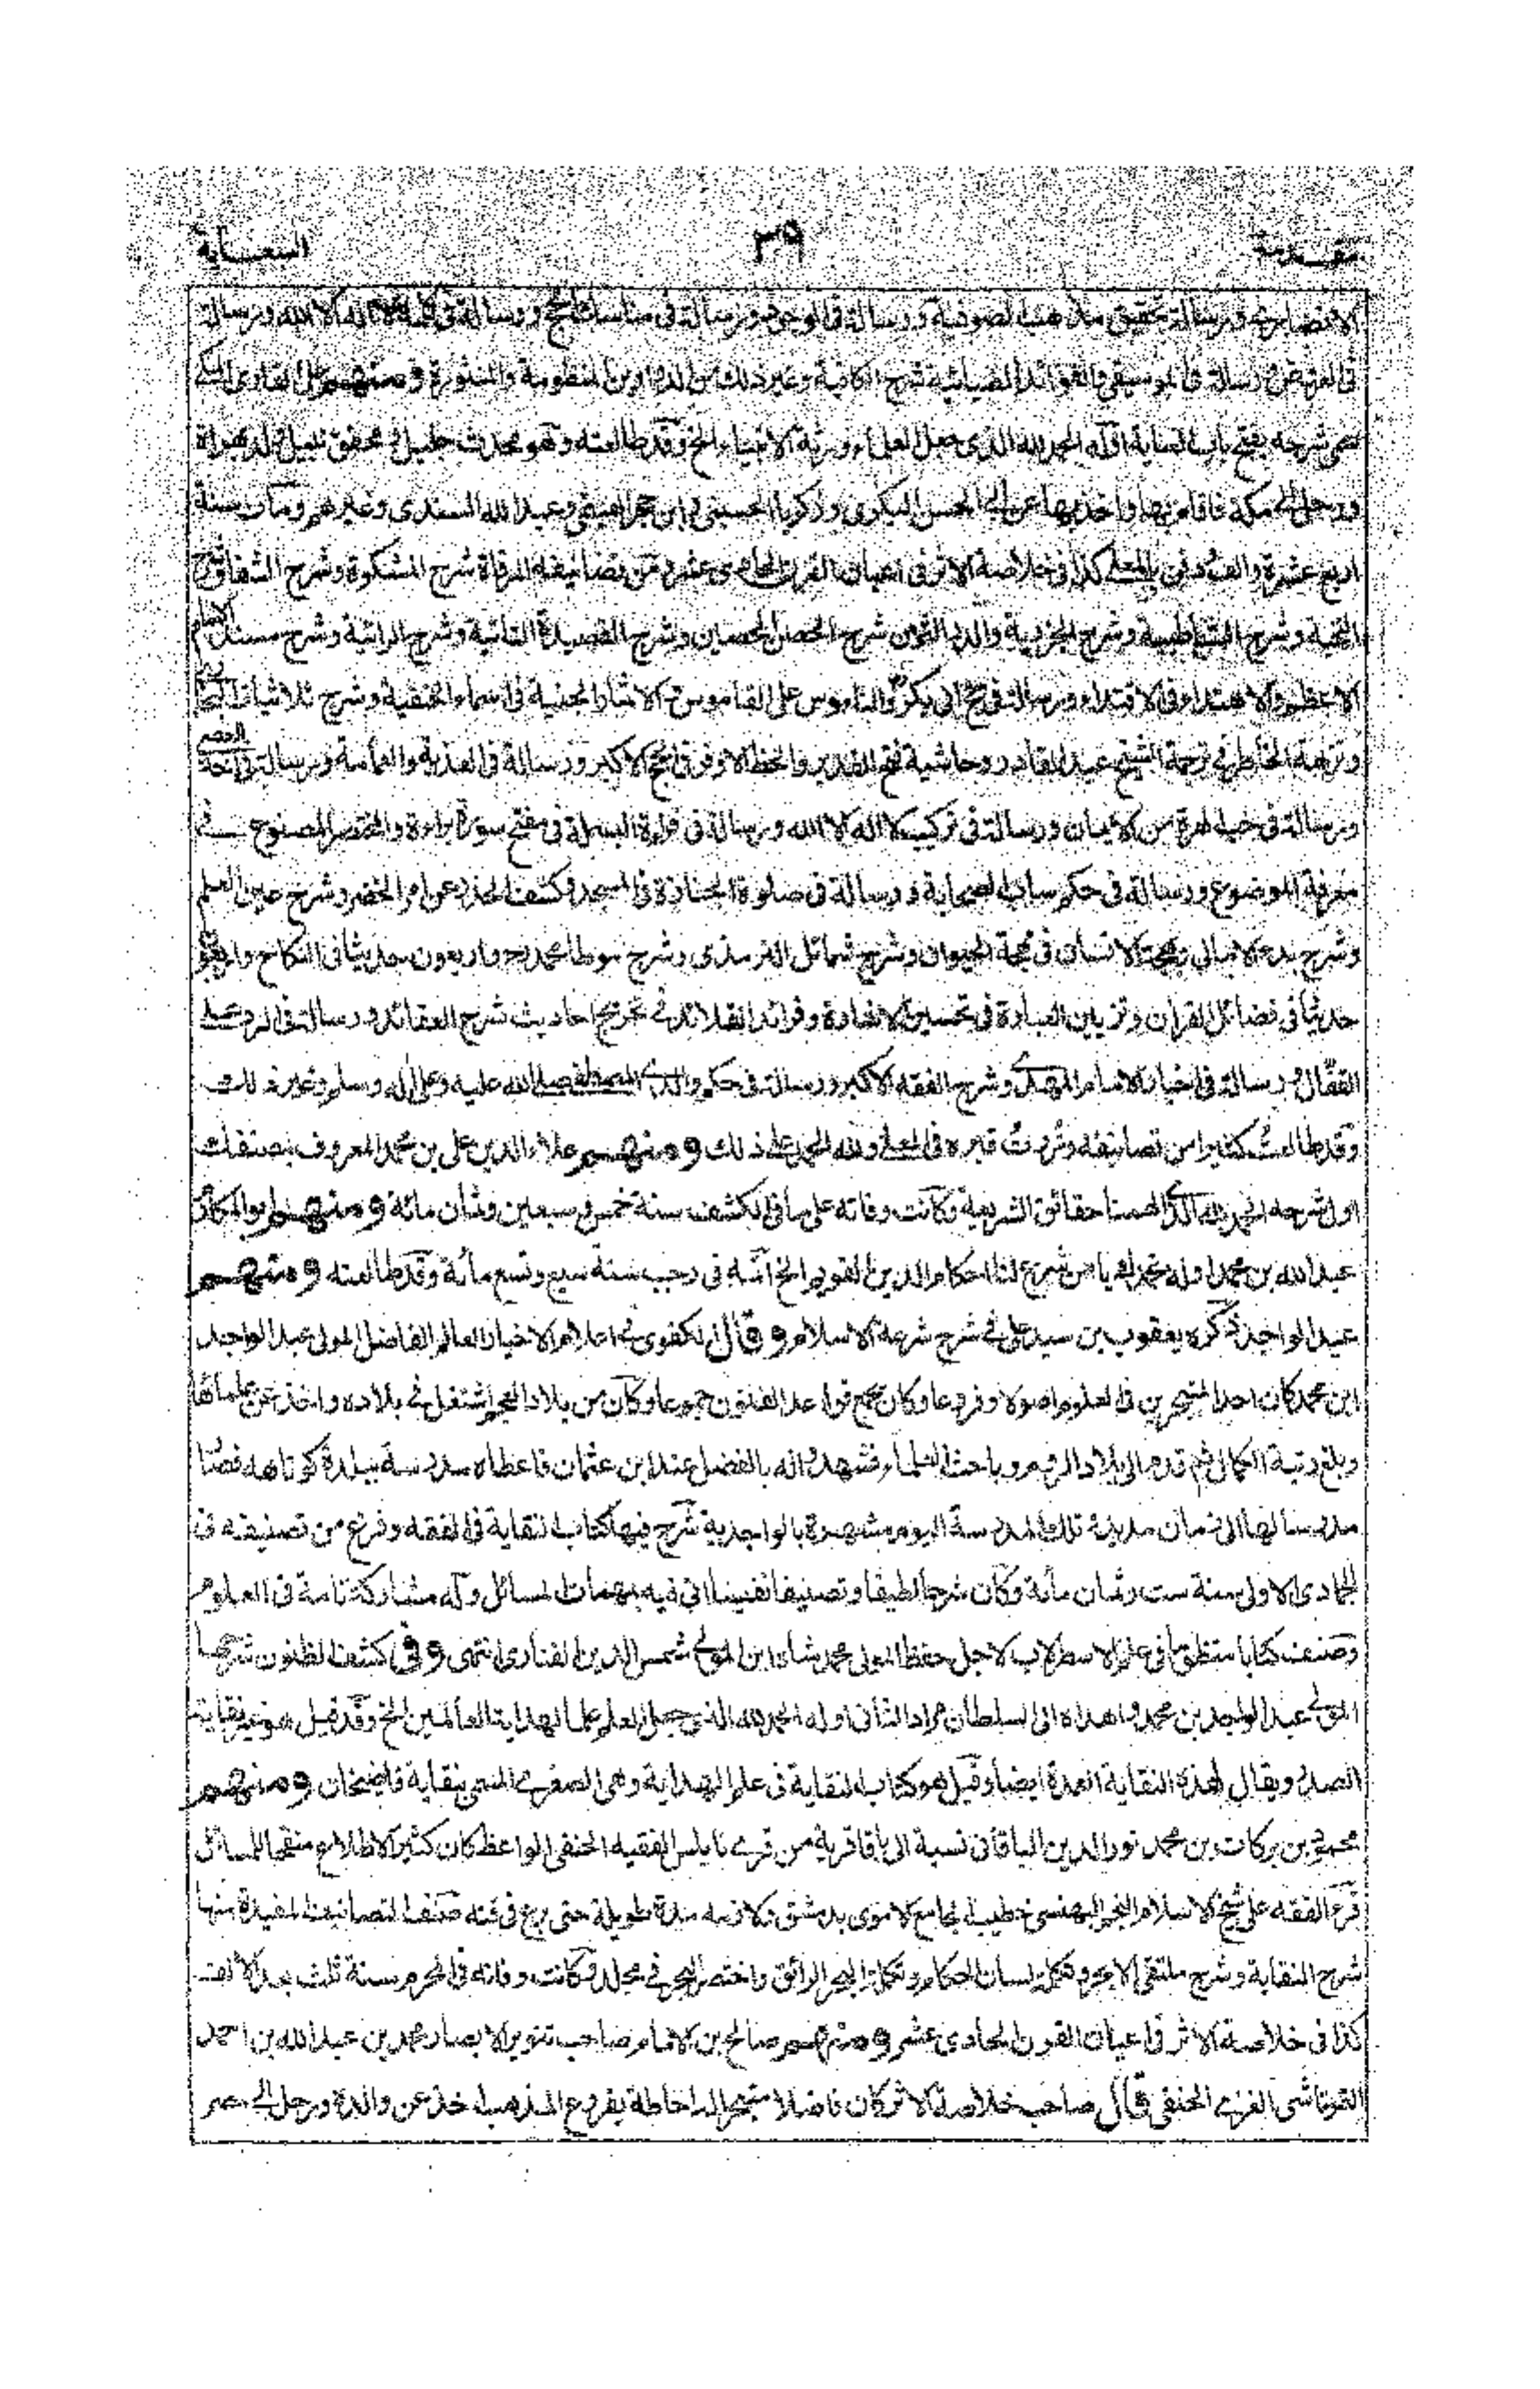 مقدمة ٣٩ السعاية
الانصارى ورسالة تحقيق مذهب الصوفية ورسالة فى الوجود ورسالة فى مناسك الحج ورسالة فى كلمة لا اله الا الله ورسالة
فى العروض ورسالة فى الموسيقى والفوائد الضيائية شرح الكافية وغير ذلك من الدواوين المنظومة والمنثورة ومنهم على القارى المكى
سمى شرحه بفتح باب العناية اوله الحمد لله الذى جعل العلماء ورثة الانبياء الخ وقد طالعته وهو محدث جليل محقق نبيل ولد بهراة
ورحل الى مكة فاقام بها واخذ بها عن ابى الحسن البكرى وزكريا الحسينى وابن حجر الهيتمى وعبد الله السندى وغيرهم ومات سنة
اربع عشرة والف ودفن بالمعلى كذا فى خلاصة الاثر فى اعيان القرن الحادى عشر ومن تصانيفه المرقاة شرح المشكوة وشرح الشفا وشرح
النخبة وشرح الشاطبية وشرح الجزرية والدر الثمين شرح الحصن الحصين وشرح القصيدة التائية وشرح الرائية وشرح مسند الامام
الاعظم والاهتداء فى الاقتداء ورسالة فى حج ابى بكر والناموس على القاموس والاثمار الجنية فى اسماء الحنفية وشرح ثلاثيات البخارى
ونزهة الخاطر فى ترجمة الشيخ عبد القادر وحاشية فتح القدير والحظ الاوفر فى الحج الاكبر ورسالة فى العذبة والعمامة ورسالة فى اتحاد العصر
ورسالة فى حب الهرة من الايمان ورسالة فى تركيب لا اله الا الله ورسالة فى قراءة البسملة فى مفتح سورة براءة والمختصر المصنوع فى
معرفة الموضوع ورسالة فى حكم ساب الصحابة ورسالة فى صلوة الجنازة فى المسجد وكشف الخدر عن امر الخضر وشرح عين العلم
وشرح بدء الامالى وبهجة الانسان فى مهجة الحيوان وشرح شمائل الترمذى وشرح موطا محمد واربعون حديثا فى النكاح واربعون
حديثا فى فضائل القران وتزيين العبارة فى تحسين الاشارة وفرائد القلائد فى تخريج احاديث شرح العقائد ورسالة فى الرد على
القفال ورسالة فى اخبار الامام المهدى وشرح الفقه الاكبر ورسالة فى حكم والدى المصطفى صلى الله عليه وعلى اله وسلم وغير ذلك
وقد طالعت كثيرا من تصانيفه وزرت قبره فى المعلى ولله الحمد على ذلك ومنهم علاء الدين على بن محمد المعروف بمصنفك
اول شرحه الحمد لله الذى الهمنا حقائق الشريعة وكانت وفاته على ما فى الكشف سنة خمس وسبعين وثمان مائة ومنهم ابو المكارم
عبد الله بن محمد اوله نحمدك يا من شرع لنا احكام الدين القويم الخ اتمه فى رجب سنة سبع وتسع مائة وقد طالعته ومنهم
عبد الواجد ذكره يعقوب بن سيد على فى شرح شرعة الاسلام وقال الكفوى فى اعلام الاخيار العالم الفاضل المولى عبد الواجد
ابن محمد كان احد المتبحرين فى العلوم اصولا وفروعا وكان يجمع قواعد الفنون جموعا وكان من بلاد العجم اشتغل فى بلاده واخذ عن علمائها
وبلغ رتبة الكمال ثم قدم الى بلاد الروم وباحث العلماء فشهدوا له بالفضل عند ابن عثمان فاعطاه مدرسة ببلدة كوتاهه فصار
مدرسا لها الى زمان مديد تلك المدرسة اليوم مشتهرة بالواجدية شرح فيها كتاب النقاية فى الفقه وفرغ من تصنيفه فى
الجمادى الاولى سنة ست وثمان مائة وكان شرحا لطيفا وتصنيفا نفيسا اتى فيه بمهمات المسائل وله مشاركة تامة فى العلوم
وصنف كتابا منظوما فى علم الاسطرلاب لاجل حفظ المولى محمد شاه ابن المولى شمس الدين الفنارى انتهى وفى كشف الظنون شرحها
المولى عبد الواجد بن محمد واهداه الى السلطان مراد الثانى اوله الحمد لله الذى جعل العلم علما لهداية العالمين الخ وقد قيل هو غير نقاية
الصدر ويقال لهذه النقاية العمدة ايضا وقيل هو كتاب النقاية فى علم الهداية وهى الصغرى المسمى بنقاية قاضيخان ومنهم
محمود بن بركات بن محمد نور الدين الباقانى نسبة الى باقا قرية من قرى نابلس الفقيه الحنفى الواعظ كان كثير الاطلاع منقحا للمسائل
قرء الفقه على شيخ الاسلام النجم البهنسى خطيب الجامع الاموى بدمشق ولازمه مدة طويلة حتى برع فى فنه صنف التصانيف المفيدة منها
شرح النقاية وشرح ملتقى الابحر وتكملة لسان الحكام وتكملة البحر الرائق واختصر البحر فى مجلد وكانت وفاته فى المحرم سنة ثلث بعد الالف
كذا فى خلاصة الاثر فى اعيان القرن الحادى عشر ومنهم صالح بن الامام صاحب تنوير الابصار محمد بن عبد الله بن احمد
التمرتاشى الغزى الحنفى قال صاحب خلاصة الاثر كان فاضلا متبحرا له احاطة بفروع المذهب اخذ عن والده ورحل الى مصر